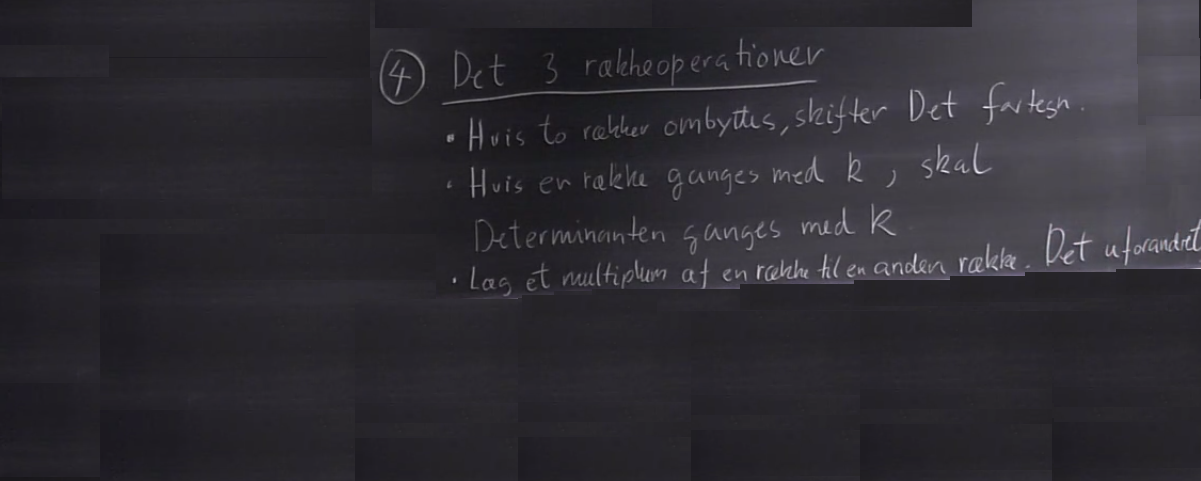 ④ Det 3 rækkeoperationer
• Hvis to rækker ombyttes, skifter Det fortegn.
• Hvis en række ganges med k, skal
Determinanten ganges med k
• Læg et multiplum af en række til en anden række. Det uforandret